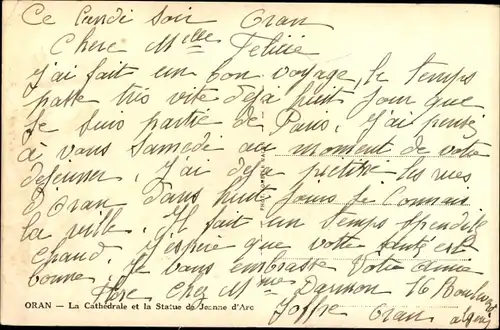 Ce Lundi soir Oran
Chere Mlle Felicie
J'ai fait un bon voyage, le temps
passe tres vite deja huit jour que
je suis partie de Paris. J'ai pensé
à vous samedi au moment de votre
dejeuner. J'ai deja pietiné les rues
d'Oran dans huit jours je connais
la ville. Il fait un temps splendide
chaud. J'espere que votre santé est
bonne. Je vous embrasse votre amie
chez Mme Darmon 76 Boulevard
Joffre Oran
ORAN – La Cathédrale et la Statue de Jeanne d'Arc